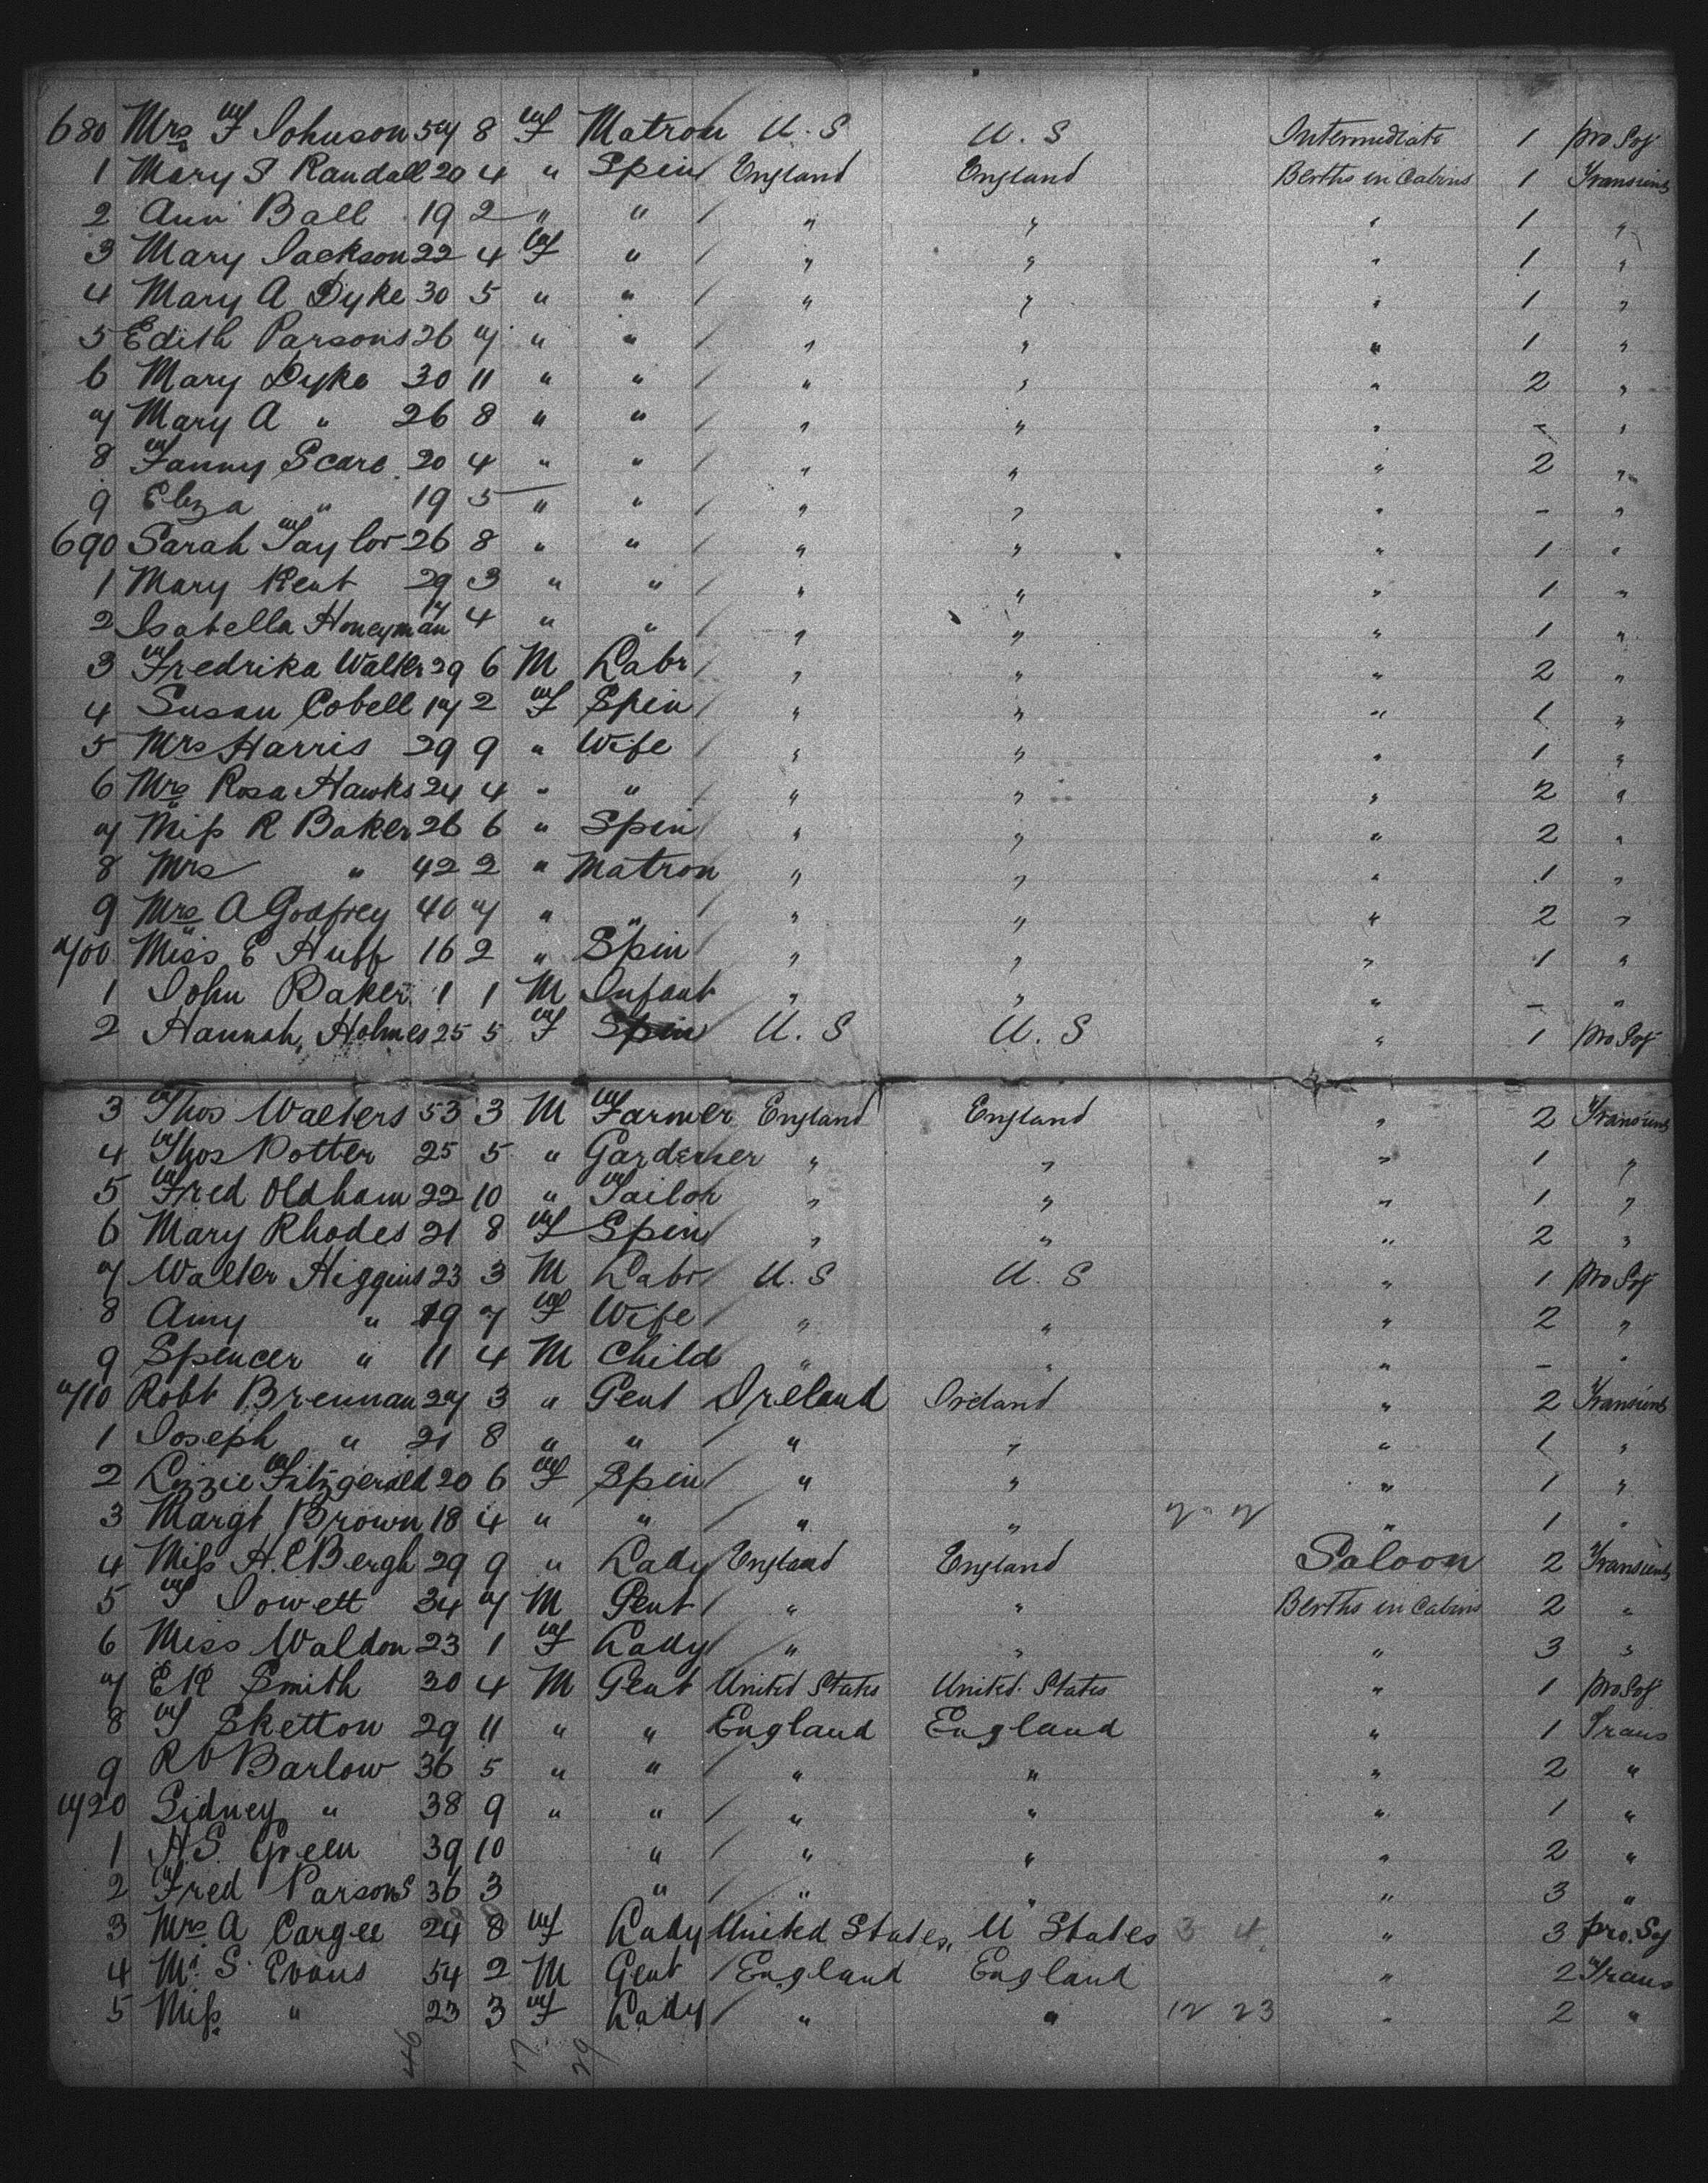 680 Mrs F Johnson 57 8 F Matron U.S U.S Intermediate 1 pro Soj
1 Mary S Randall 20 4 " Spin England England Berths in Cabins 1 Transient
2 Ann Ball 19 2 " " / " " " 1 "
3 Mary Jackson 22 4 F " / " " " 1 "
4 Mary A Dyke 30 5 " " / " " " 1 "
5 Edith Parsons 26 7 " " / " " " 1 "
6 Mary Dyke 30 11 " " / " " " 2 "
7 Mary A " 26 8 " " / " " " - "
8 Fanny Scare 20 4 " " / " " " 2 "
9 Eliza " 19 5 " " / " " " - "
690 Sarah Taylor 26 8 " " / " " " 1 "
1 Mary Kent 29 3 " " / " " " 1 "
2 Isabella Honeyman 17 4 " " / " " " 1 "
3 Fredrika Walter 29 6 M Labr / " " " 2 "
4 Susan Cobell 17 2 F Spin / " " " 1 "
5 Mrs Harris 29 9 " Wife / " " " 1 "
6 Mrs Rosa Hawks 24 4 " " / " " " 2 "
7 Miss R Baker 26 6 " Spin / " " " 2 "
8 Mrs " 42 2 " Matron " " " 1 "
9 Mrs A Godfrey 40 7 " " / " " " 2 "
700 Miss E Huff 16 2 " Spin / " " " 1 "
1 John Baker 1 1 M Infant " " " - "
2 Hannah Holmes 25 5 F Spin U.S U.S " 1 pro Soj
3 Thos Walters 53 3 M Farmer England England " 2 Transient
4 Thos Potter 25 5 " Gardener " " " 1 "
5 Fred Oldham 22 10 " Tailor " " " 1 "
6 Mary Rhodes 21 8 F Spin " " " 2 "
7 Walter Higgins 23 3 M Labr / U.S U.S " 1 pro Soj
8 Amy " 19 7 F Wife / " " " 2 "
9 Spencer " 11 4 M Child " " " - "
710 Robt Brennan 27 3 " Gent Ireland Ireland " 2 Transient
1 Joseph " 21 8 " " / " " " 1 "
2 Lizzie Fitzgerald 20 6 F Spin / " " " 1 "
3 Margt Brown 18 4 " " / " " " 1 "
4 Miss H.C Bergh 29 9 " Lady England England Saloon 2 Transient
5 T Jowett 34 7 M Gent / " " Berths in Cabins 2 "
6 Miss Waldon 23 1 F Lady / " " " 3 "
7 E R Smith 30 4 M Gent United States United States " 1 pro Soj
8 T Sketton 29 11 " " England England " 1 Trans
9 R V Barlow 36 5 " " / " " " 2 "
720 Sidney " 38 9 " " / " " " 1 "
1 H.S. Green 39 10 " / " " " 2 "
2 Fred Parsons 36 3 " / " " " 3 "
3 Mrs A Cargee 24 8 F Lady United States, U States 3 4 " 3 pro. Soj
4 Mr S. Evans 54 2 M Gent / England England " 2 Trans
5 Miss " 23 3 F Lady / " " 12 23 " 2 "
46 17 29